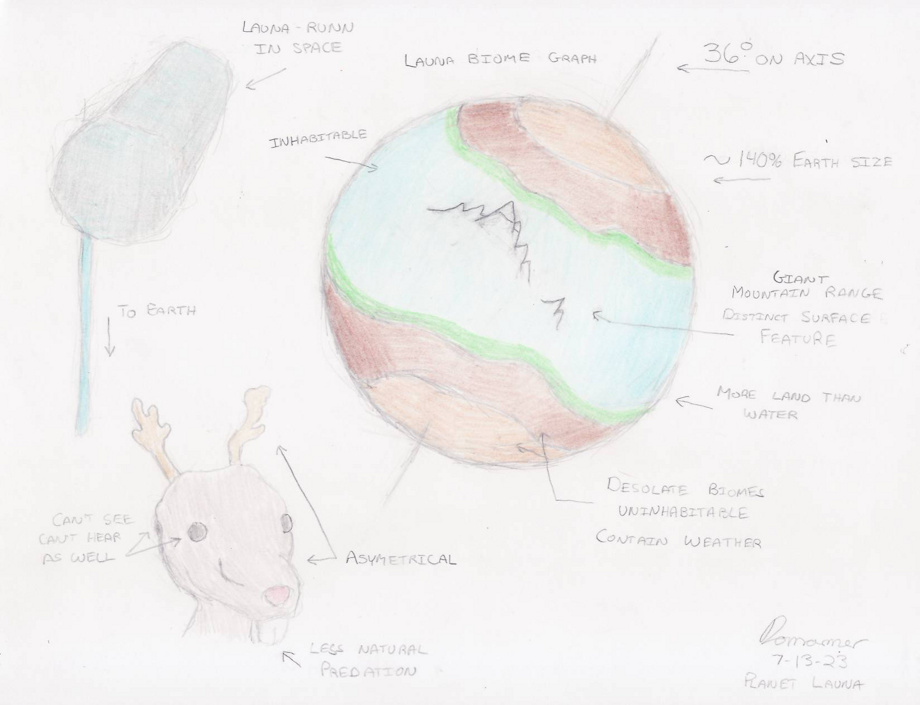 LAUNA-RUNN
IN SPACE
LAUNA BIOME GRAPH
36° ON AXIS
INHABITABLE
~ 140% EARTH SIZE
GIANT
MOUNTAIN RANGE
DISTINCT SURFACE
FEATURE
TO EARTH
MORE LAND THAN
WATER
DESOLATE BIOMES
UNINHABITABLE
CONTAIN WEATHER
CAN'T SEE
CAN'T HEAR
AS WELL
ASYMETRICAL
LESS NATURAL
PREDATION
7-13-23
PLANET LAUNA